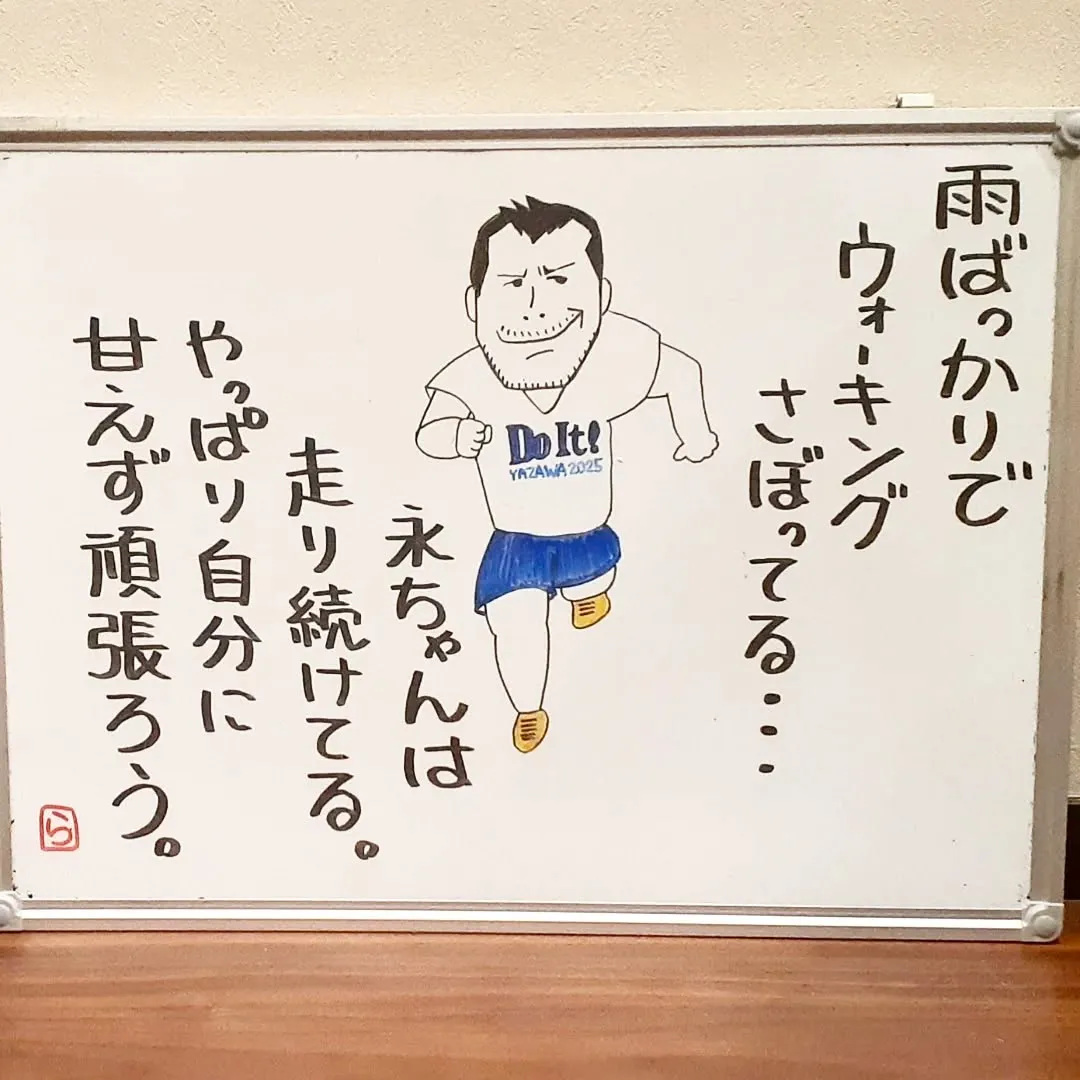 雨ばっかりで
ウォーキング
さぼってる・・・
Do It!
YAZAWA2025
永ちゃんは
走り続けてる。
やっぱり自分に
甘えず頑張ろう。
ら